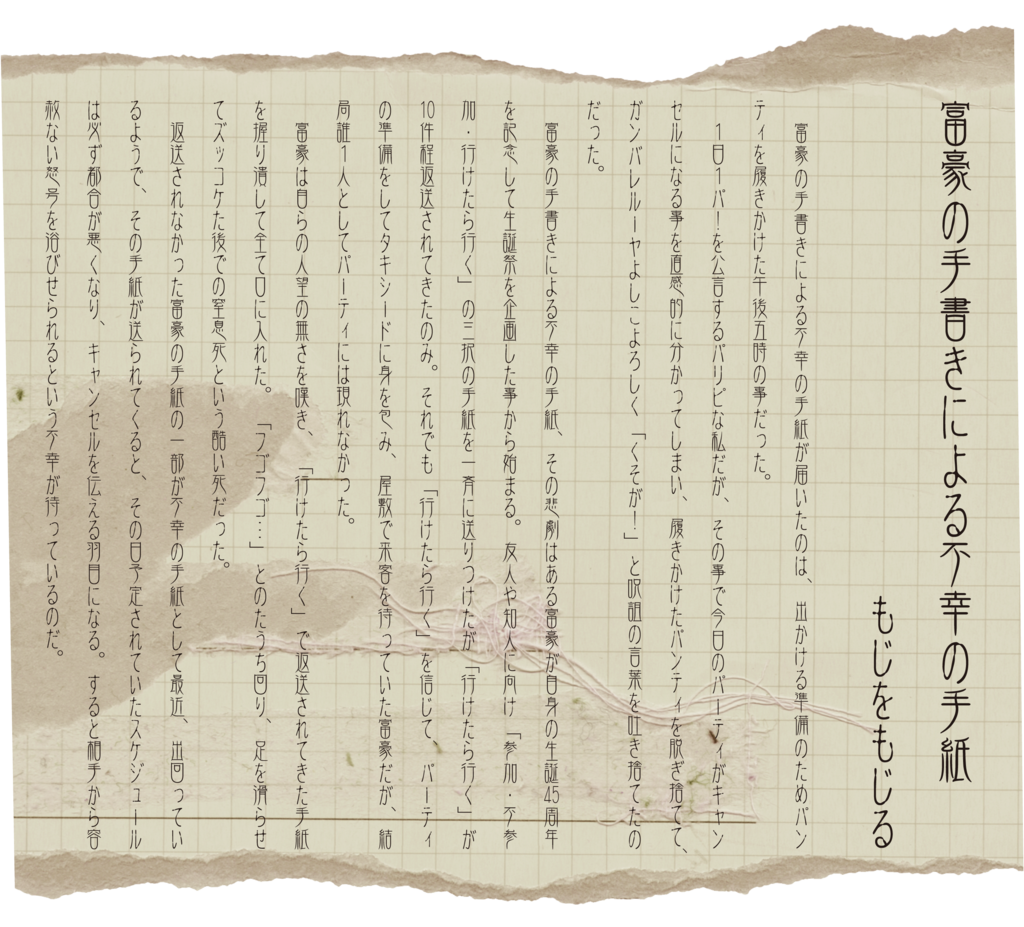 富豪の手書きによる不幸の手紙
もじをもじる
富豪の手書きによる不幸の手紙が届いたのは、出かける準備のためパン
ティを履きかけた午後五時の事だった。
1日1パ!を公言するパリピな私だが、その事で今日のパーティがキャン
セルになる事を直感的に分かってしまい、履きかけたパンティを脱ぎ捨てて、
ガンバレルーヤよしこよろしく「くそが!」と呪詛の言葉を吐き捨てたの
だった。
富豪の手書きによる不幸の手紙、その悲劇はある富豪が自身の生誕45周年
を記念して生誕祭を企画した事から始まる。友人や知人に向け「参加・不参
加・行けたら行く」の三択の手紙を一斉に送りつけたが「行けたら行く」が
10件程返送されてきたのみ。それでも「行けたら行く」を信じて、パーティ
の準備をしてタキシードに身を包み、屋敷で来客を待っていた富豪だが、結
局誰1人としてパーティには現れなかった。
富豪は自らの人望の無さを嘆き、「行けたら行く」で返送されてきた手紙
を握り潰して全て口に入れた。「フゴフゴ…」とのたうち回り、足を滑らせ
てズッコケた後での窒息死という酷い死だった。
返送されなかった富豪の手紙の一部が不幸の手紙として最近、出回ってい
るようで、その手紙が送られてくると、その日予定されていたスケジュール
は必ず都合が悪くなり、キャンセルを伝える羽目になる。すると相手から容
赦ない怒号を浴びせられるという不幸が待っているのだ。